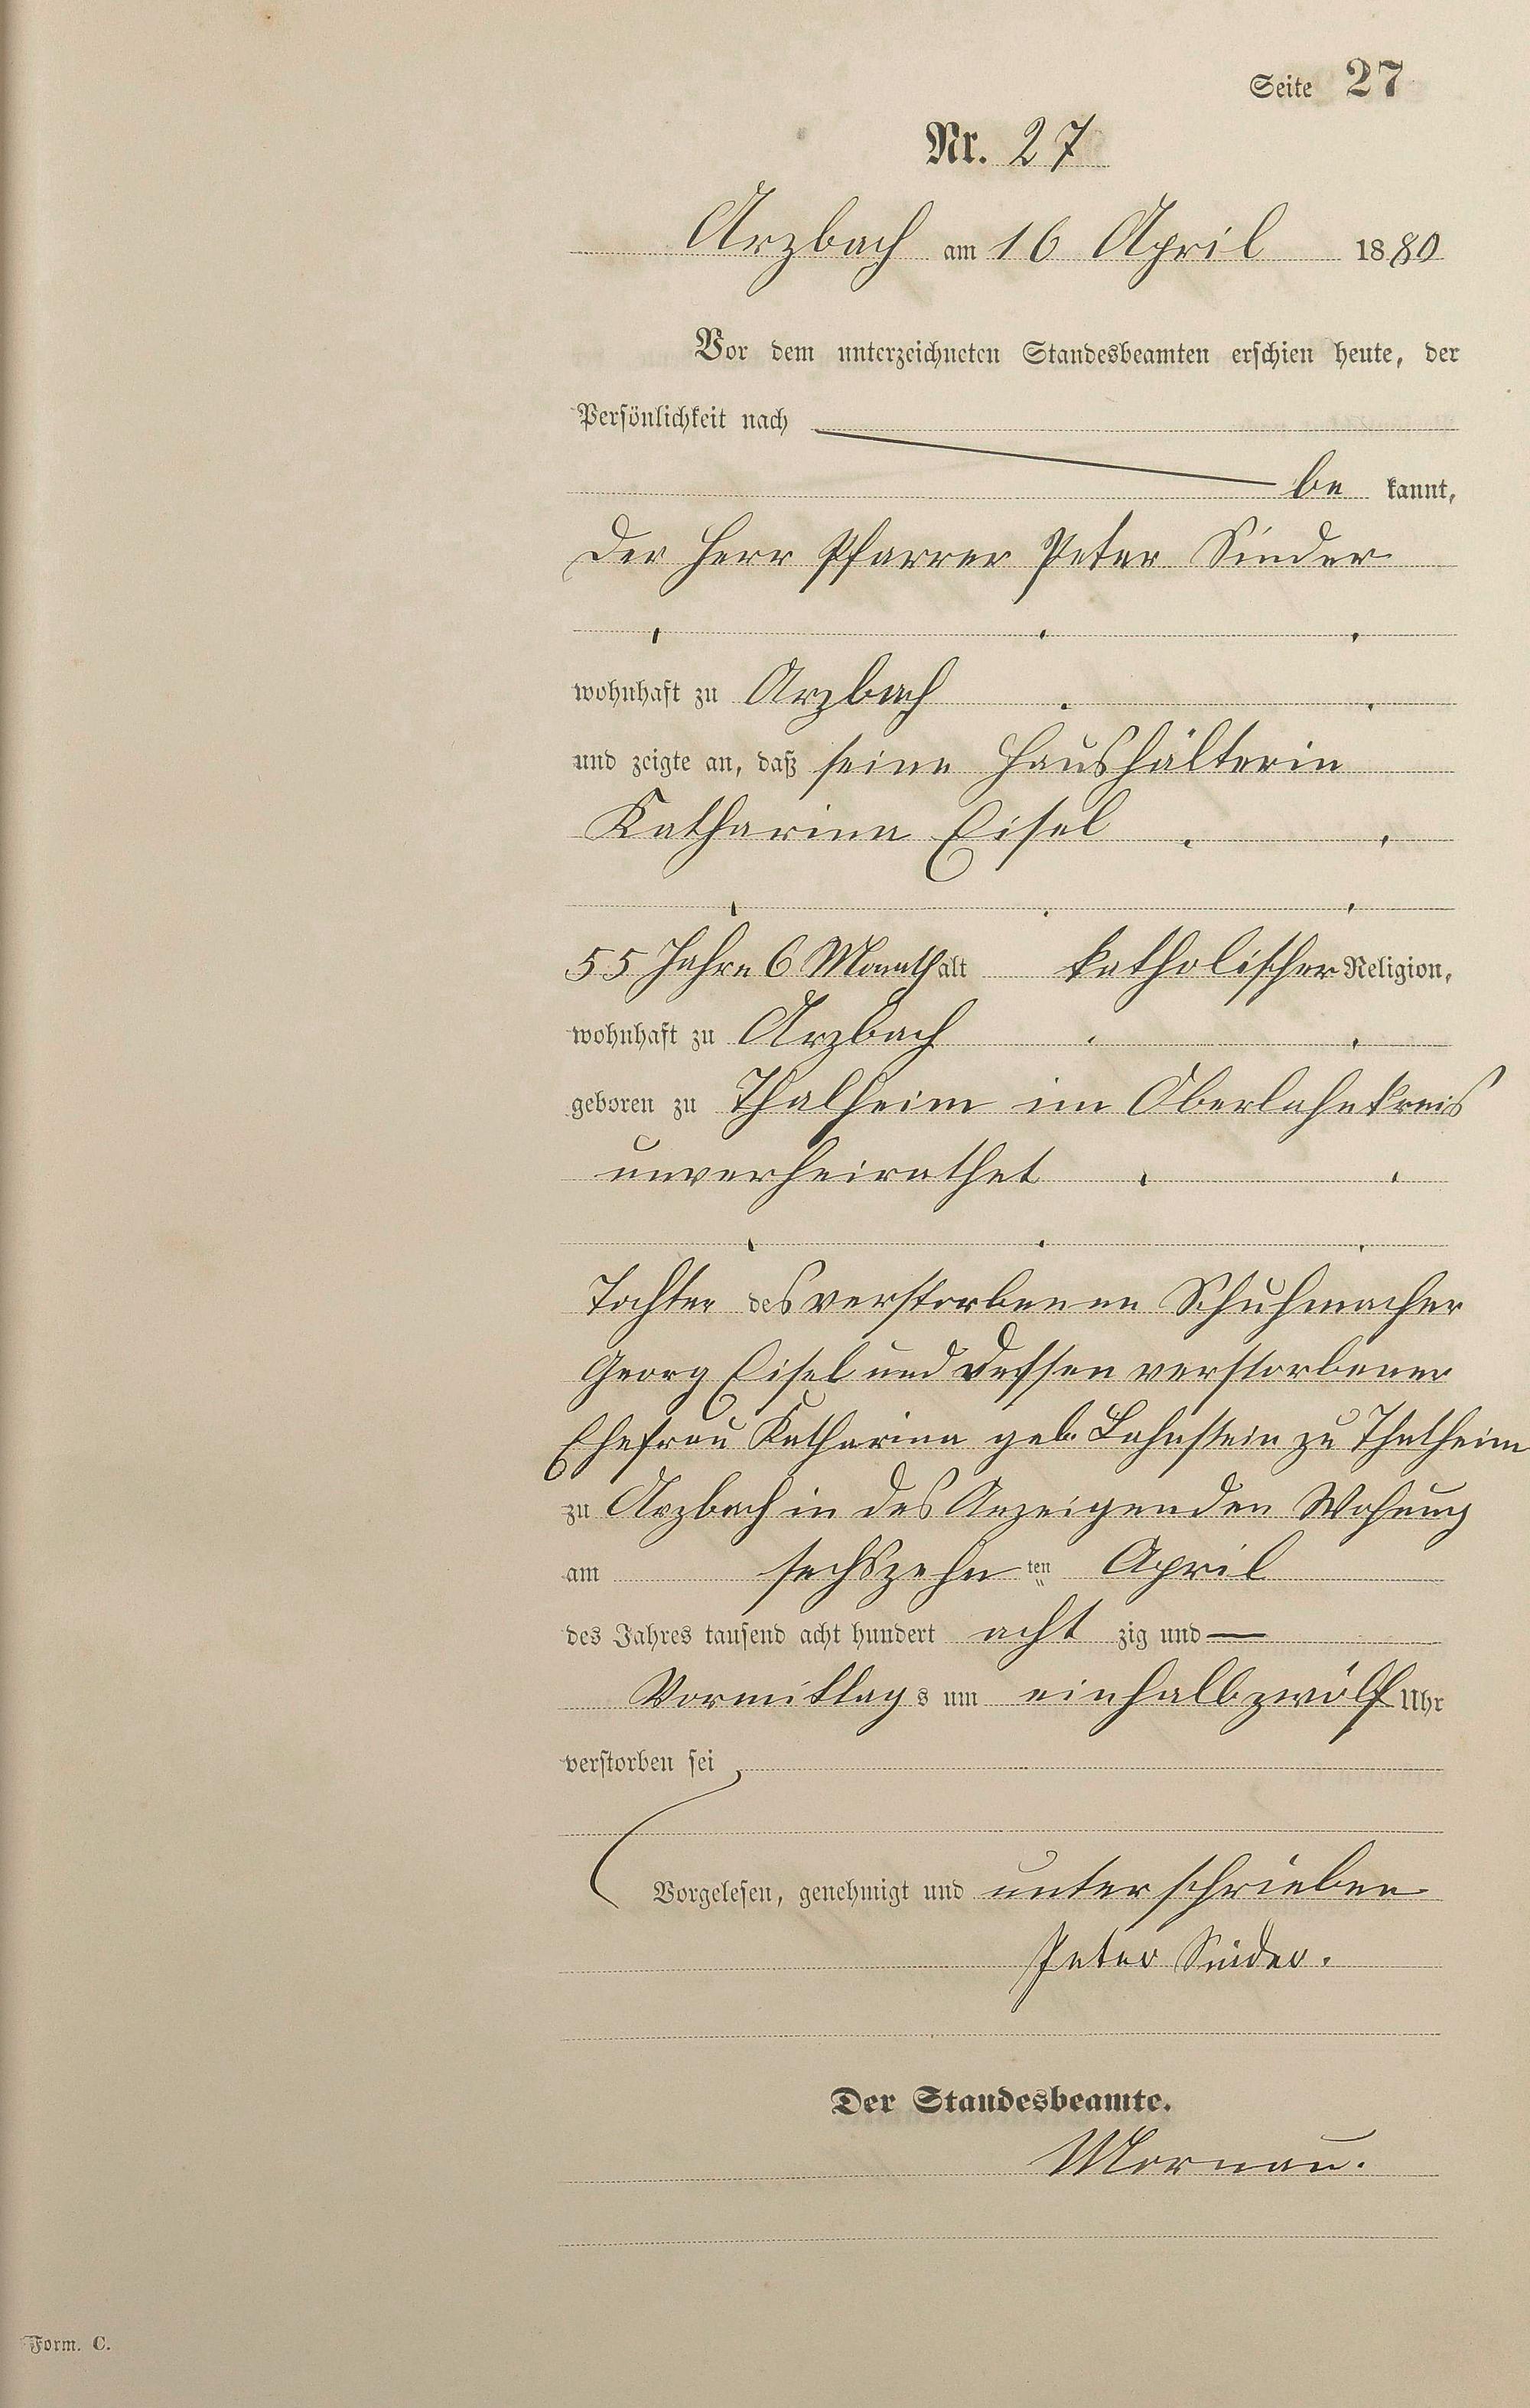 Seite 27
Nr. 27
Arzbach am 16 April 1880
Vor dem unterzeichneten Standesbeamten erschien heute, der
Persönlichkeit nach
be kannt,
der Herr Pfarrer Peter Sinder
wohnhaft zu Arzbach
und zeigte an, daß seine Haushälterin
Katharina Eisel
55 Jahre 6 Monath alt katholischer Religion,
wohnhaft zu Arzbach
geboren zu Thalheim im Oberlahnkreis
unverheirathet
Tochter des verstorbenen Schuhmacher
Georg Eisel und dessen verstorbener
Ehefrau Katharina geb. Lahnstein zu Thalheim
zu Arzbach in des Anzeigenden Wohung
am sechszehn ten April
des Jahres tausend acht hundert acht zig und —
Vormittag s um einhalbzwölf Uhr
verstorben sei
Vorgelesen, genehmigt und unterschrieben
Peter Sinder.
Der Standesbeamte.
Mornau.
Form. C.